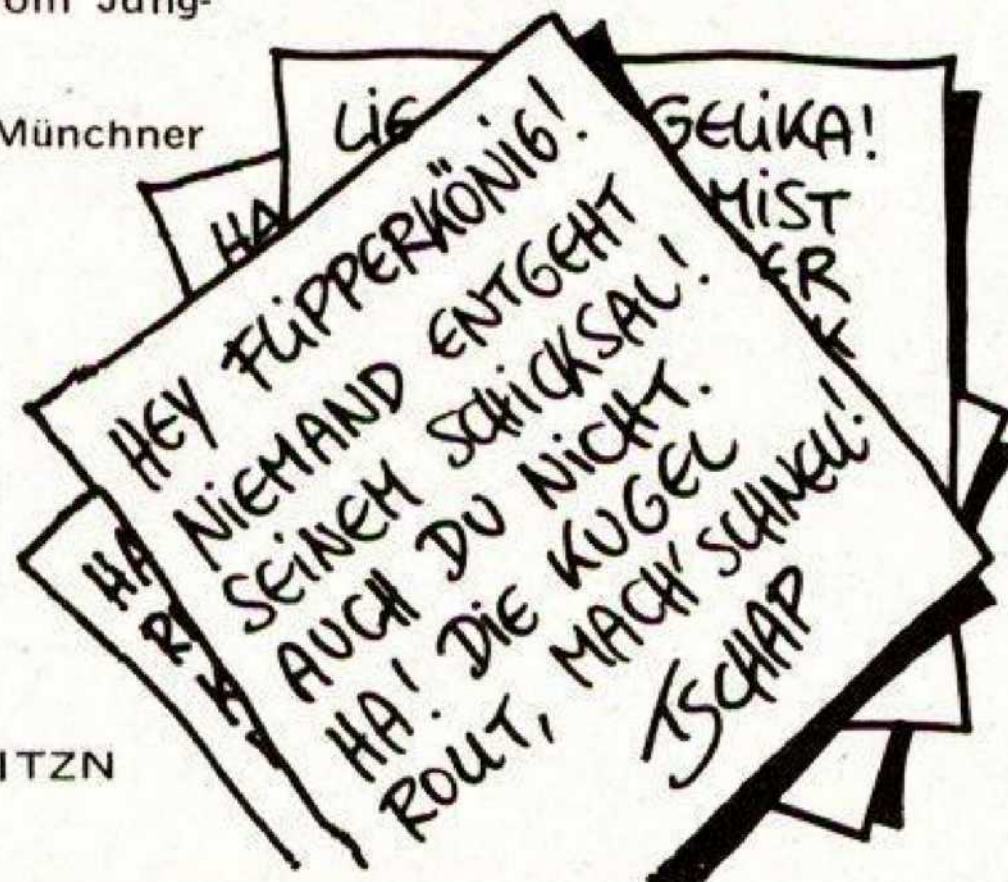 om Jung-
Münchner
ITZN
LIE GELIKA!
MIST
ER
HA
HEY FLIPPERKÖNIG!
NIEMAND ENTGEHT
SEINEM SCHICKSAL!
AUCH DU NICHT.
HA! DIE KUGEL
ROLLT, MACH' SCHNELL!
TSCHAP
HA